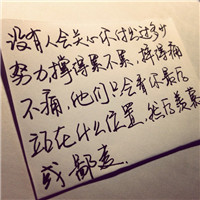 没有人会关心你付出过多少
努力撑得累不累，摔得痛
不痛，他们只会看你最后
站在什么位置，然后羡慕
或鄙夷。